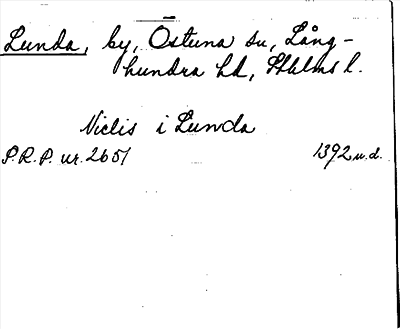 Lunda, by, Östuna sn, Lång-
hundra hd, Sthlms l.
Niclis i Lunda
P.R.P. nr. 2651 1392 u.d.